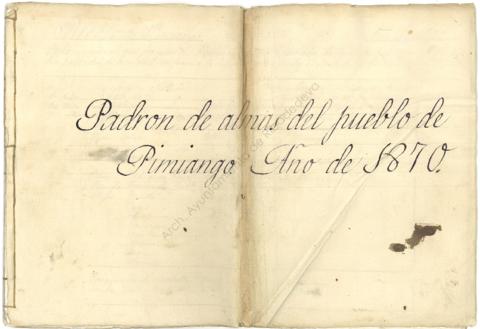 Padron de almas del pueblo de
Pimiango Año de 1870.
Arch. Ayuntamiento de Ribadedeva